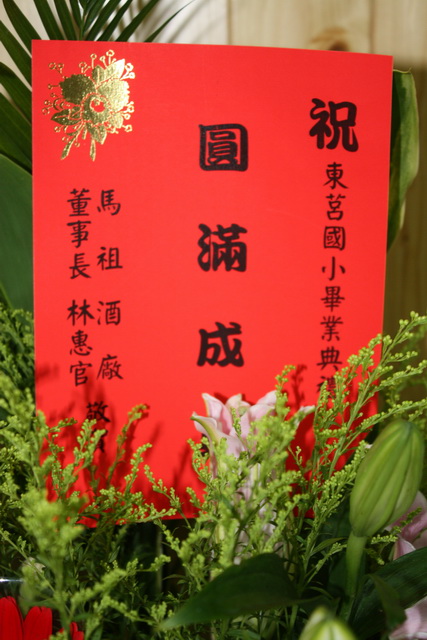 祝
東莒國小畢業典禮
圓滿成
馬祖酒廠
董事長 林惠官 敬